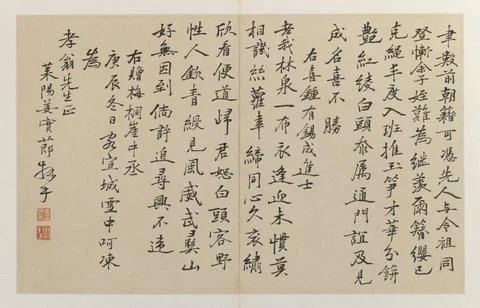 聿數前朝籍可憑先人与令祖同
登慚余姪難為継羨爾簪纓已
克繩丰度入班推玉笋才華分餅
艷紅綾白頭忝屬通門誼及見
成名喜不勝
右喜鍾有錫成進士
老我林泉一布衣逢迎未慣莫
相譏絲蘿幸締同心久裘繡
欣看便道歸君恕白頭容野
性人欽青綬見風威武彞山
好無因到倘許追尋興不違
右贈梅桐崖中丞
庚辰冬日客宣城雪中呵凍
為
孝翁先生正
萊陽姜實節